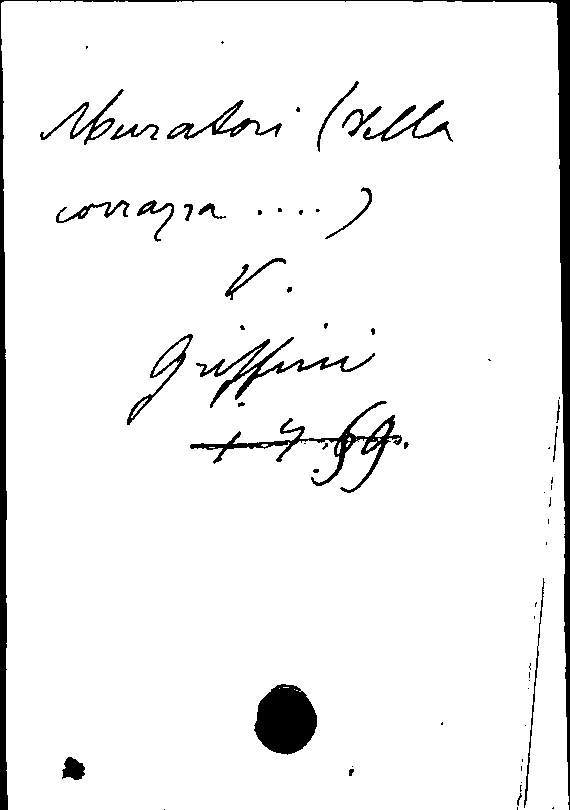 Muratori (della
corrazza ....)
V.
Griffini
1769.